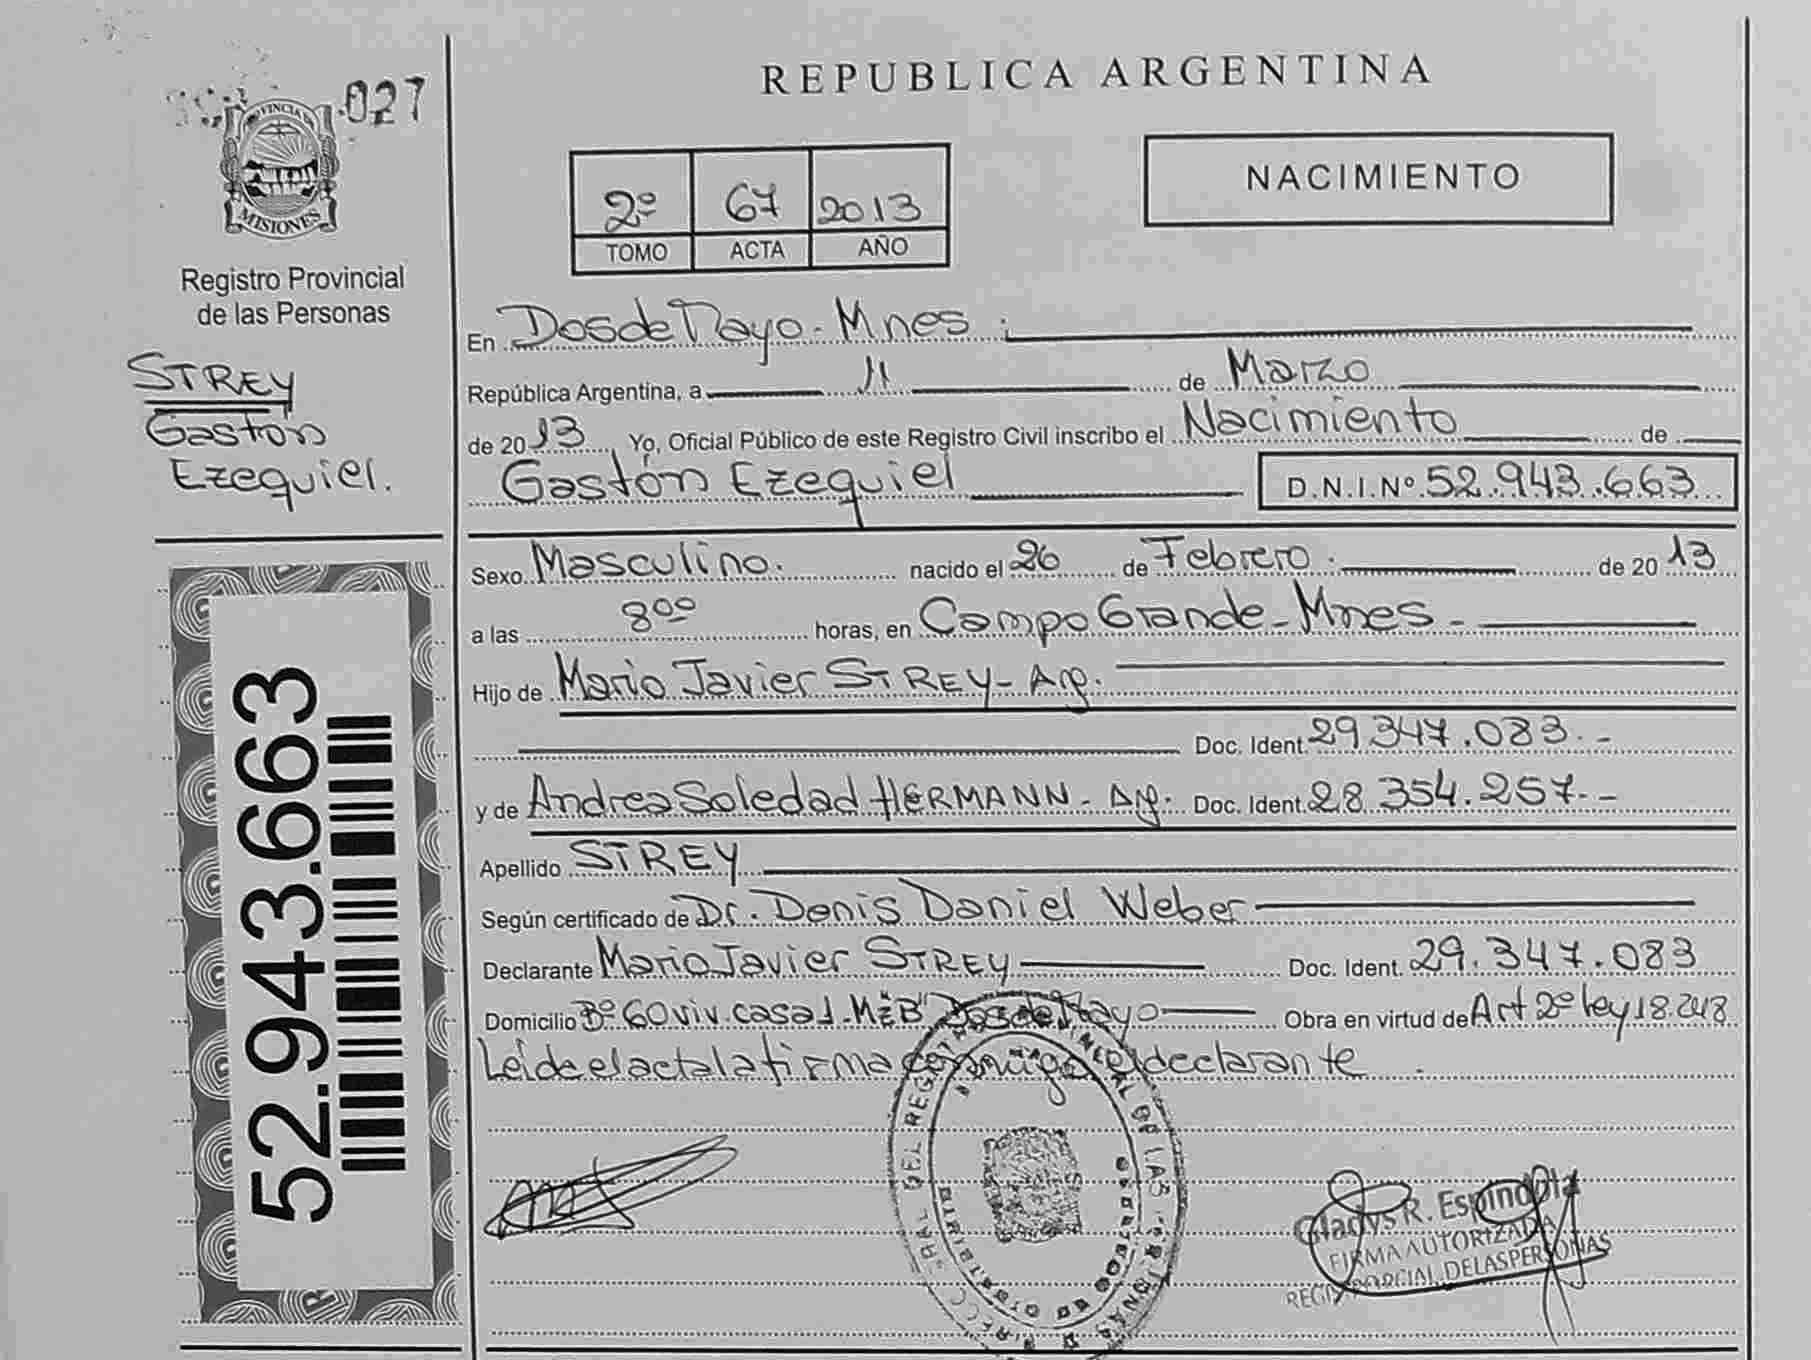 027
PROVINCIA DE
MISIONES
Registro Provincial
de las Personas
STREY
Gastón
Ezequiel.
52.943.663
REPUBLICA ARGENTINA
2º 67 2013
TOMO ACTA AÑO
NACIMIENTO
En Dos de Mayo - Mnes.
República Argentina, a 11 de Marzo
de 2013 Yo, Oficial Público de este Registro Civil inscribo el Nacimiento de
Gastón Ezequiel D.N.I.Nº 52.943.663
Sexo Masculino. nacido el 26 de Febrero. de 2013
a las 8⁰⁰ horas, en Campo Grande - Mnes -
Hijo de Mario Javier STREY - Arg.
Doc. Ident. 29.347.083.-
y de Andrea Soledad HERMANN - Arg. Doc. Ident. 28.354.257.-
Apellido STREY
Según certificado de Dr. Denis Daniel Weber
Declarante Mario Javier STREY Doc. Ident. 29.347.083
Domicilio Bº 60 viv. casa 1 - Mz "B" Dos de Mayo Obra en virtud de Art 2º ley 18.248
Leída el acta la firma conmigo el declarante
Gladys R. Espindola
FIRMA AUTORIZADA
DE LAS PERSONAS